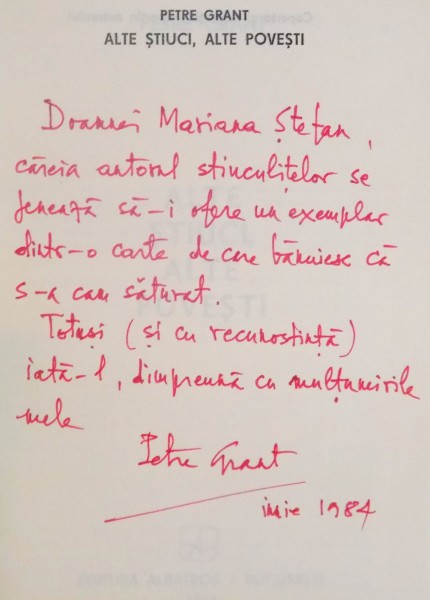 PETRE GRANT
ALTE ȘTIUCI, ALTE POVEȘTI
Doamnei Mariana Ștefan,
căreia autorul știuculițelor se
jenează să-i ofere un exemplar
dintr-o carte de care bănuiesc că
s-a cam săturat.
Totuși (și cu recunoștință)
iată-l, dimpreună cu mulțumirile
mele
Petre Grant
iunie 1984